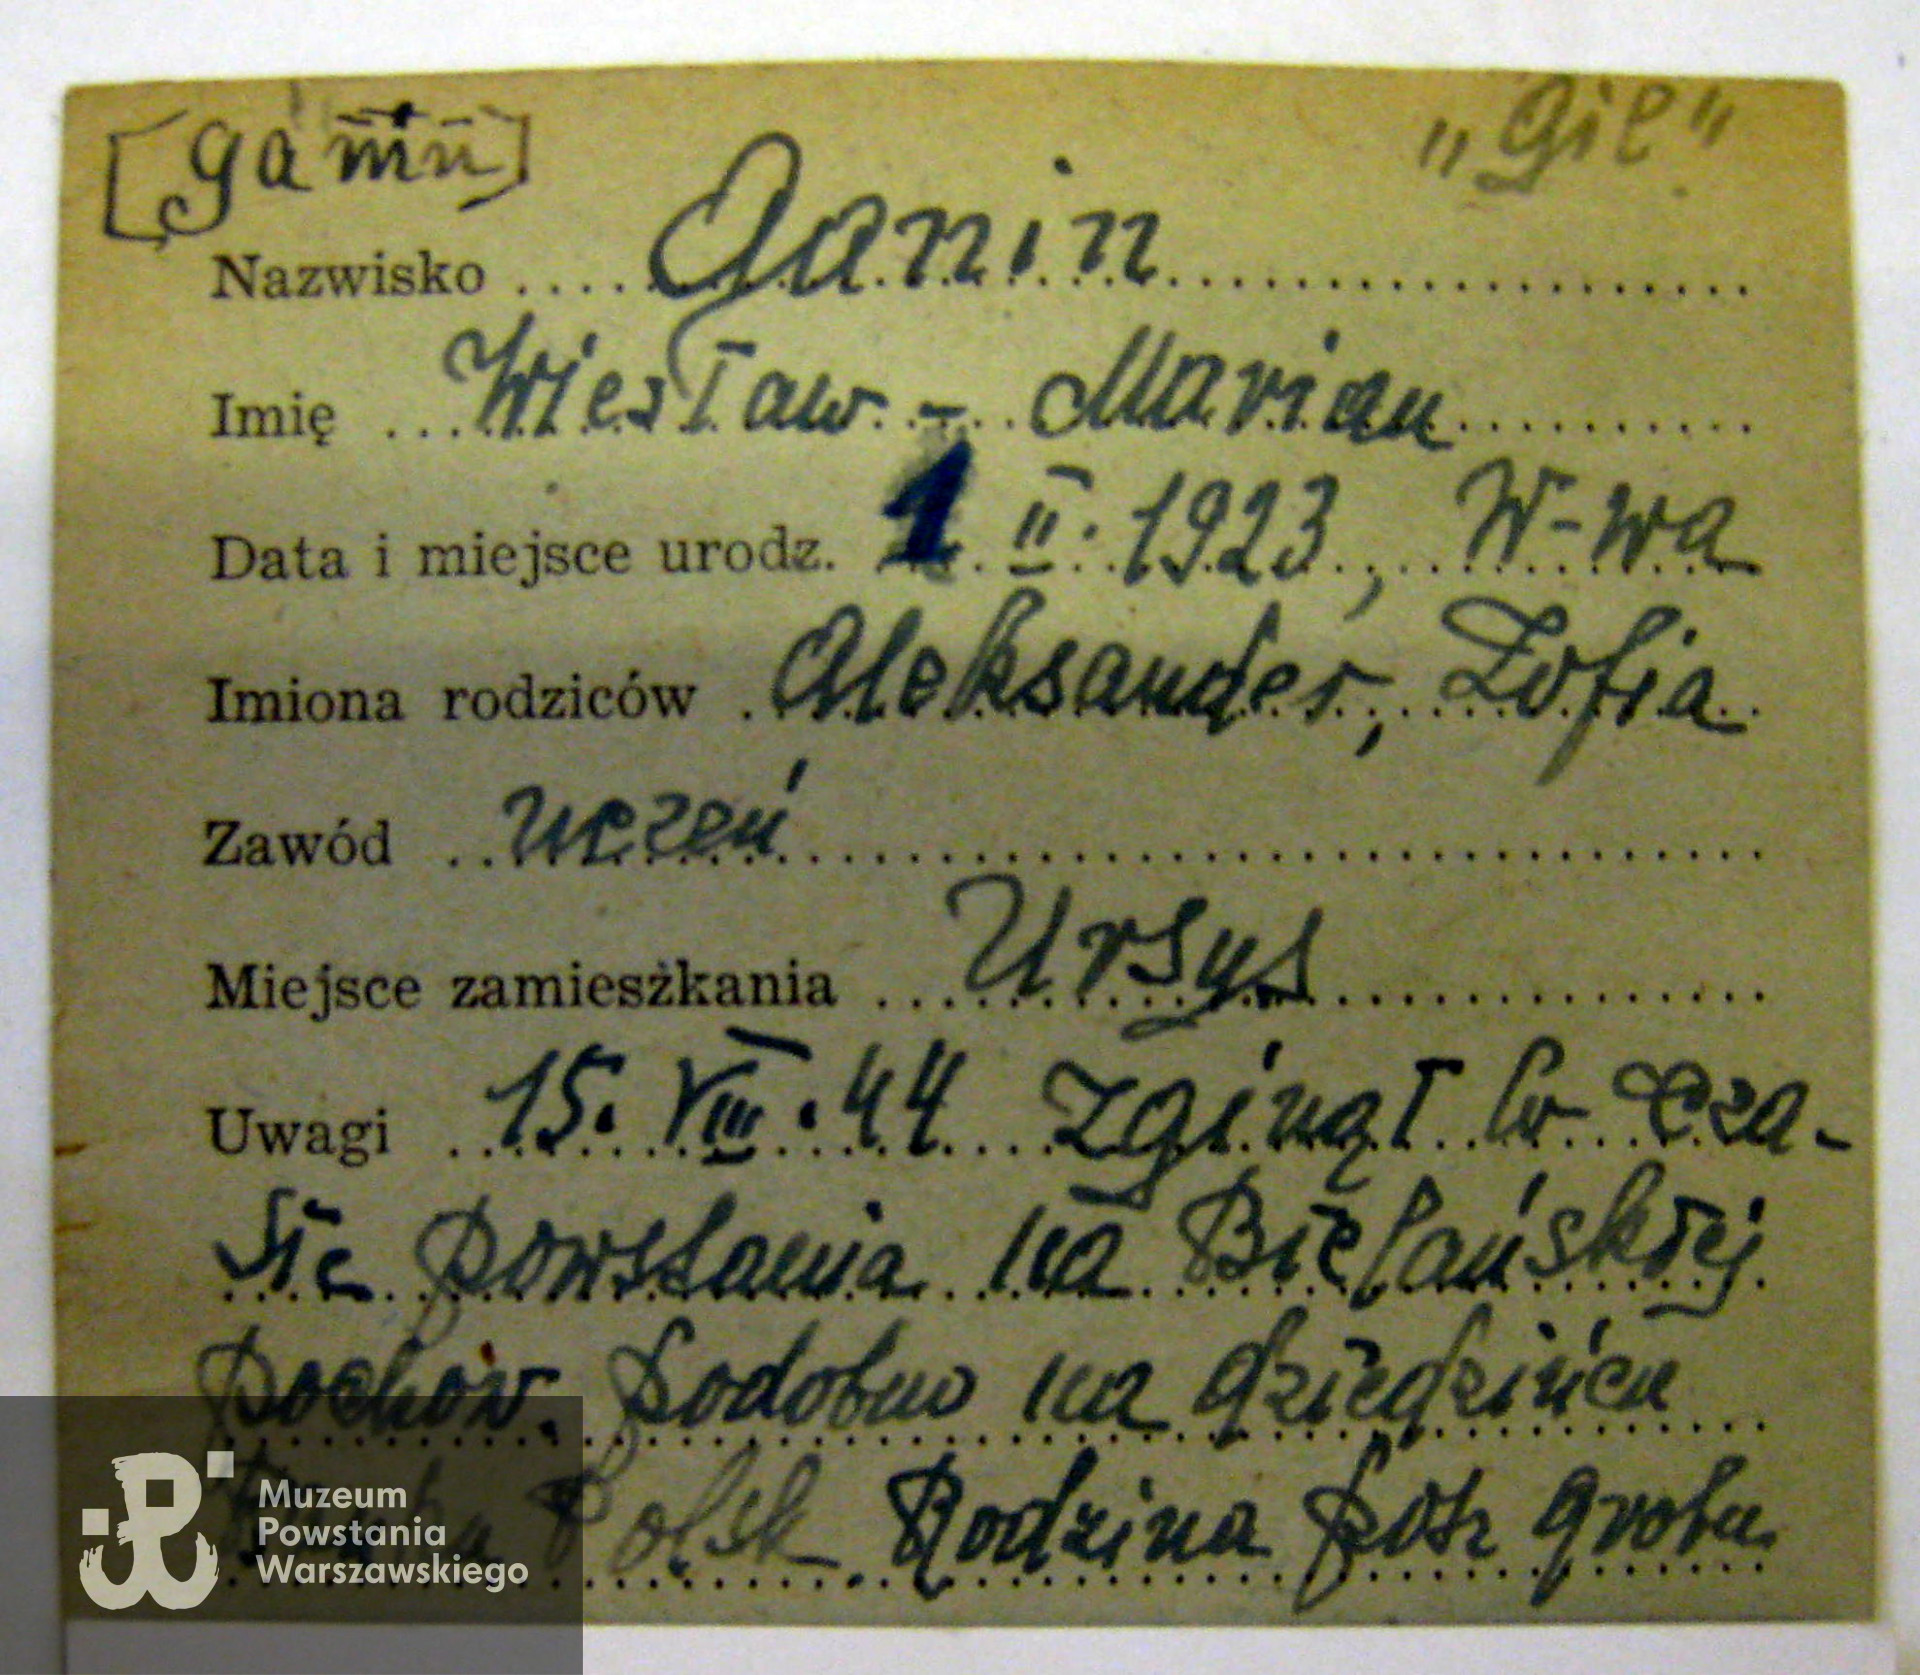 „Gil"
Nazwisko Ganin
Imię Wiesław - Marian
Data i miejsce urodz. 1. II. 1923, W-wa
Imiona rodziców Aleksander, Zofia
Zawód uczeń
Miejsce zamieszkania Ursus
Uwagi 15. VIII. 44 zginął w cza-
sie powstania na Bielańskiej
Pochow. podobno na dziedzińcu
Polsk. Rodzina posz grobu
Muzeum
Powstania
Warszawskiego